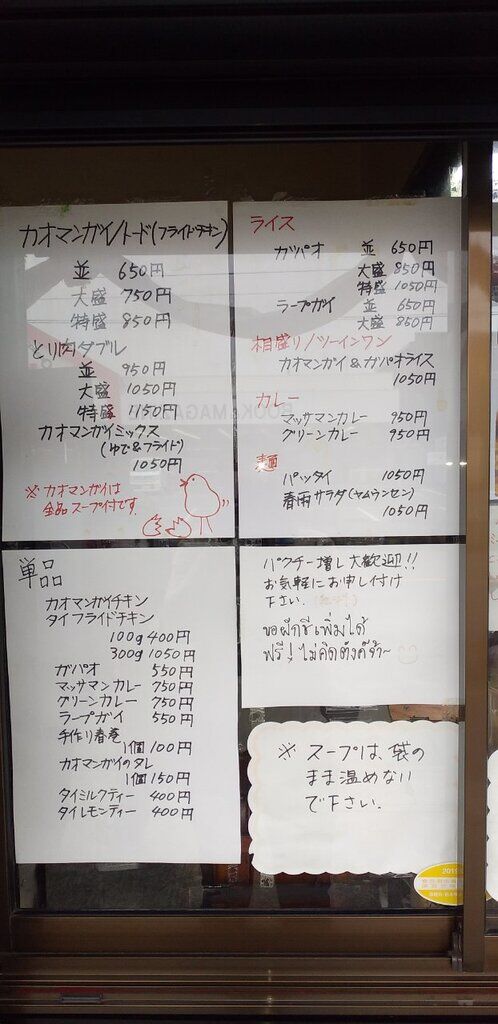 カオマンガイ/トード(フライドチキン)
並 650円
大盛 750円
特盛 850円
とり肉ダブル
並 950円
大盛 1050円
特盛 1150円
カオマンガイミックス
(ゆで&フライド)
1050円
※カオマンガイは
全品スープ付です。
ライス
ガッパオ 並 650円
大盛 850円
特盛 1050円
ラープガイ 並 650円
大盛 850円
相盛り/ツーインワン
カオマンガイ&ガパオライス
1050円
カレー
マッサマンカレー 950円
グリーンカレー 950円
麺
パッタイ 1050円
春雨サラダ(ヤムウンセン)
1050円
単品
カオマンガイチキン
タイフライドチキン
100g 400円
300g 1050円
ガパオ 550円
マッサマンカレー 750円
グリーンカレー 750円
ラープガイ 550円
手作り春巻
1個 100円
カオマンガイのタレ
1個 150円
タイミルクティー 400円
タイレモンティー 400円
パクチー増し大歓迎!!
お気軽にお申し付け
下さい。
ขอผักชีเพิ่มได้
ฟรี! ไม่คิดตังค์จ้า~
※スープは、袋の
まま温めない
で下さい。
BOOK & MAGA